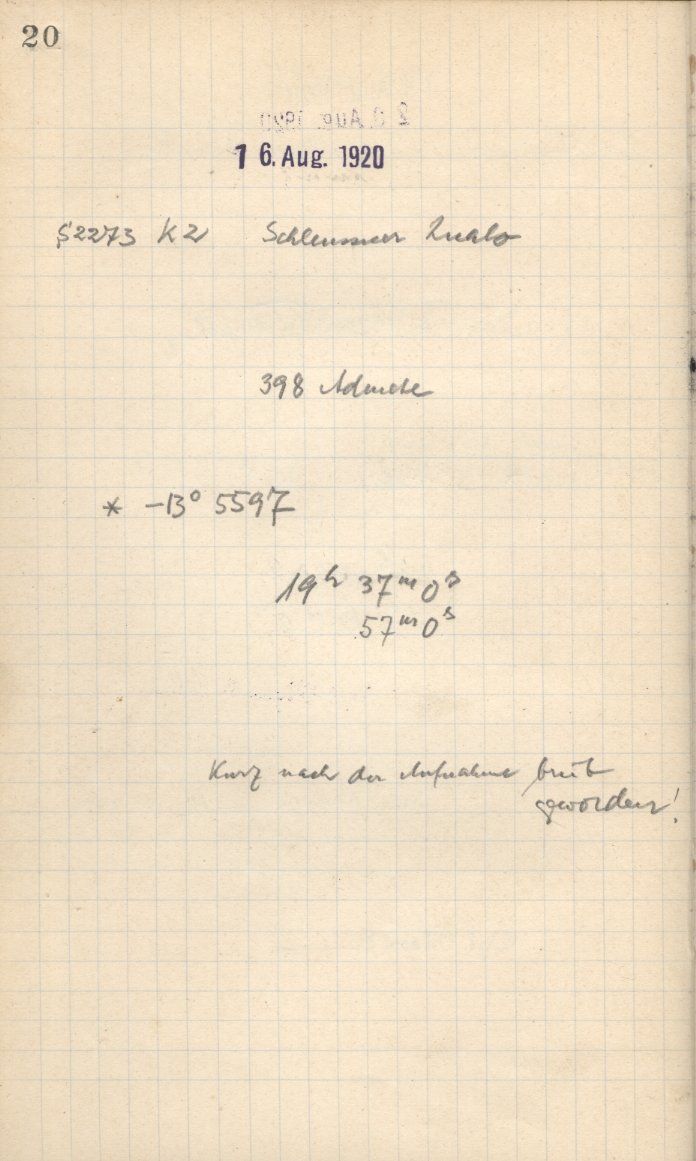 20
16. Aug. 1920
S2273 K2 Schleussner
398 Admete
* -13° 5597
19h 37m 0s
57m 0s
Kurz nach der Aufnahme trüb
geworden!